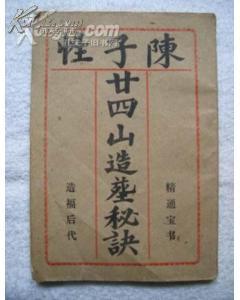 陳子性
廿四山造塟秘訣
精通宝书
造福后代